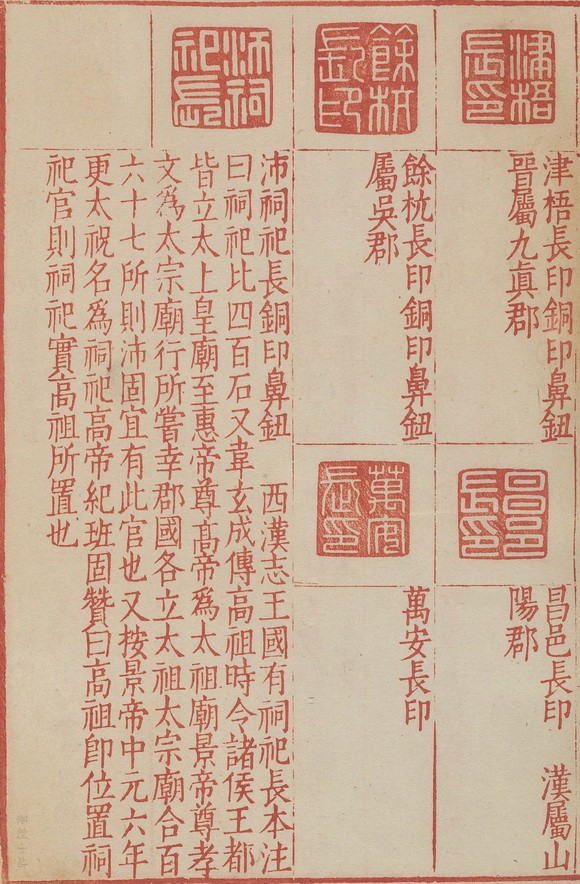 津梧
長印
津梧長印銅印鼻鈕
晉屬九眞郡
昌邑
長印
昌邑長印 漢屬山
陽郡
餘杭
長印
餘杭長印銅印鼻鈕
屬吳郡
萬安
長印
萬安長印
沛祠
祀長
沛祠祀長銅印鼻鈕 西漢志王國有祠祀長本注
曰祠祀比四百石又韋玄成傳高祖時令諸侯王都
皆立太上皇廟至惠帝尊高帝爲太祖廟景帝尊孝
文爲太宗廟行所嘗幸郡國各立太祖太宗廟合百
六十七所則沛固宜有此官也又按景帝中元六年
更太祝名爲祠祀高帝紀班固贊曰高祖卽位置祠
祀官則祠祀實高祖所置也